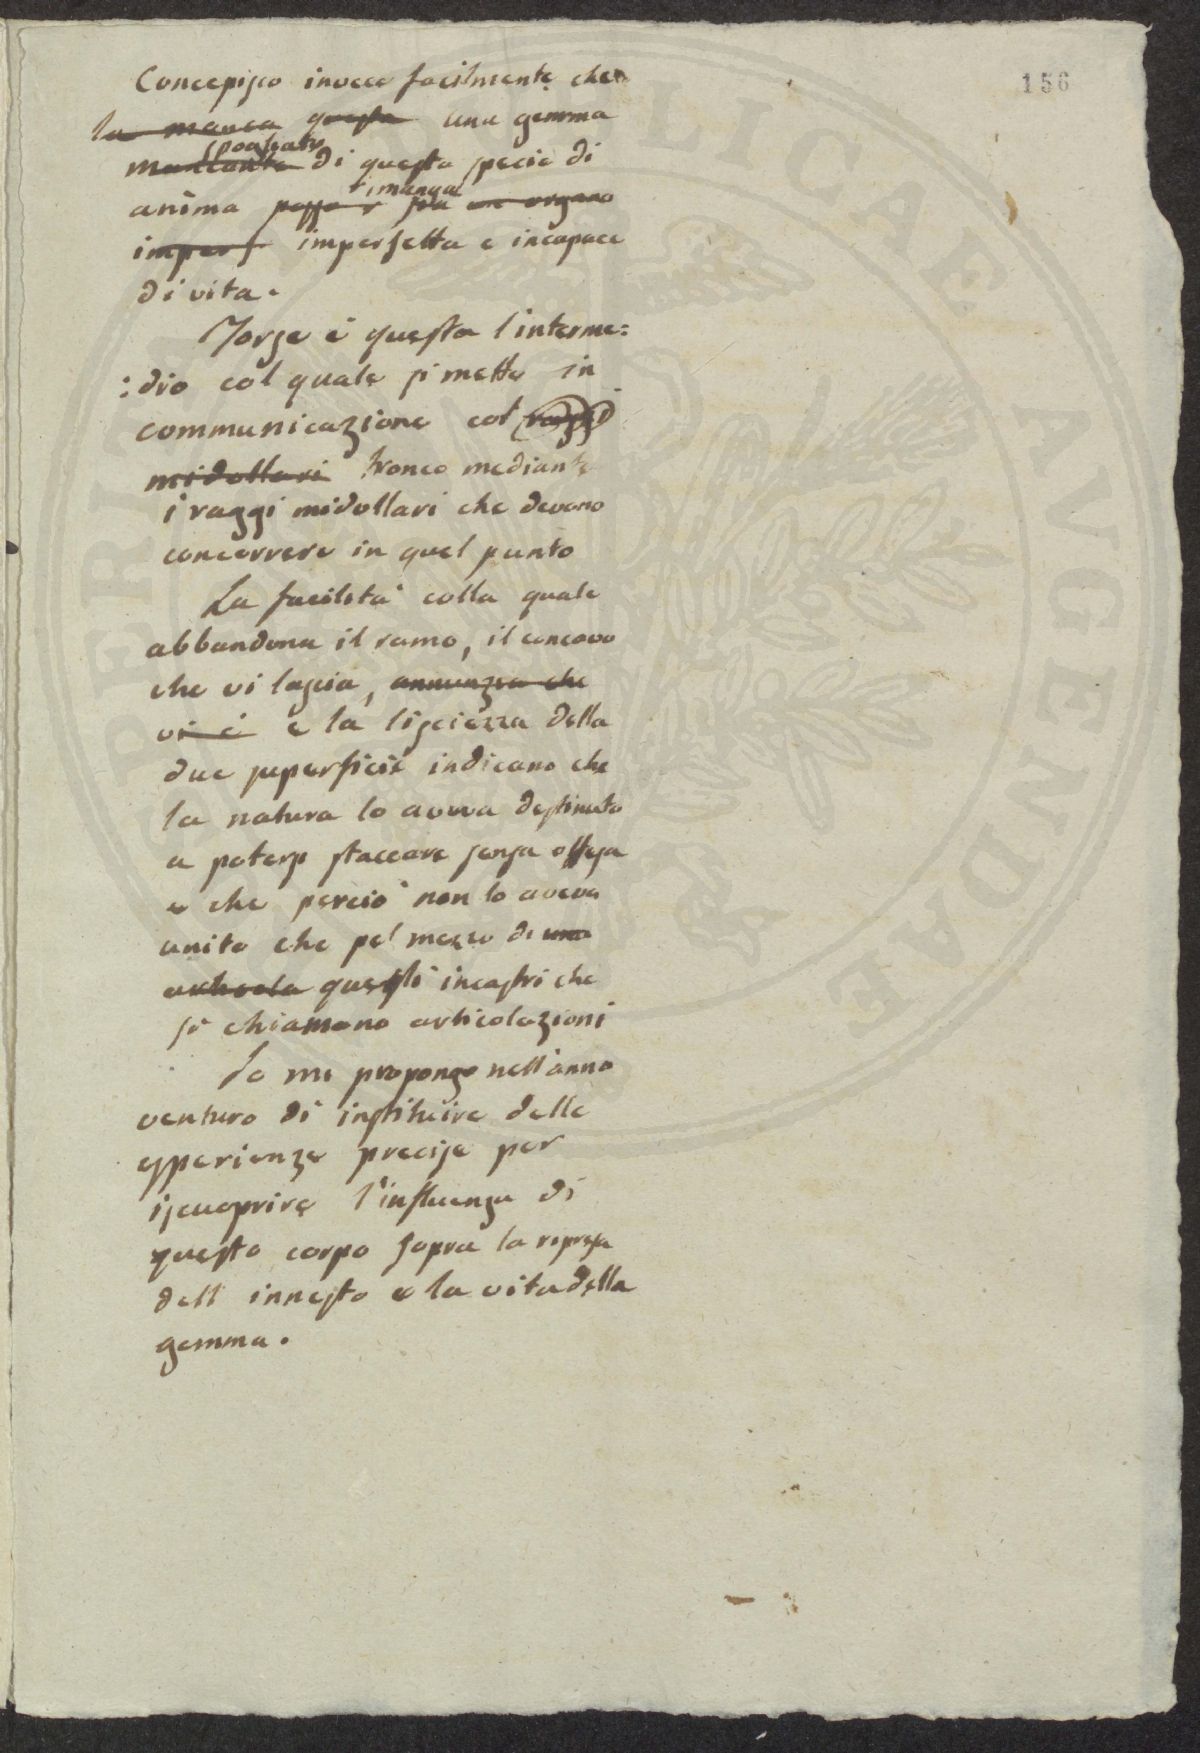 156
Concepisco invece facilmente che
la manca questa una gemma
spogliata
mancante di questa specie di
rimanga
anima possa sia un organo
imperf imperfetta e incapace
di vita.
Forze è questa l'interme:
:dio col quale si mette in
communicazione col raggi
midollari tronco mediante
i raggi midollari che devono
concorrere in quel punto
La facilità colla quale
abbandona il ramo, il concavo
che vi lascia, annunzia che
vi è e la lisciezza della
due superficie indicano che
la natura lo aveva destinato
a potersi staccare senza offesa
e che perciò non lo aveva
unito che pel mezzo di una
quegli incastri che
si chiamano articolazioni
Io mi propongo nell'anno
venturo di instituire delle
esperienze precise per
iscuoprire l'influenza di
questo corpo sopra la ripresa
dell innesto e la vita della
gemma.